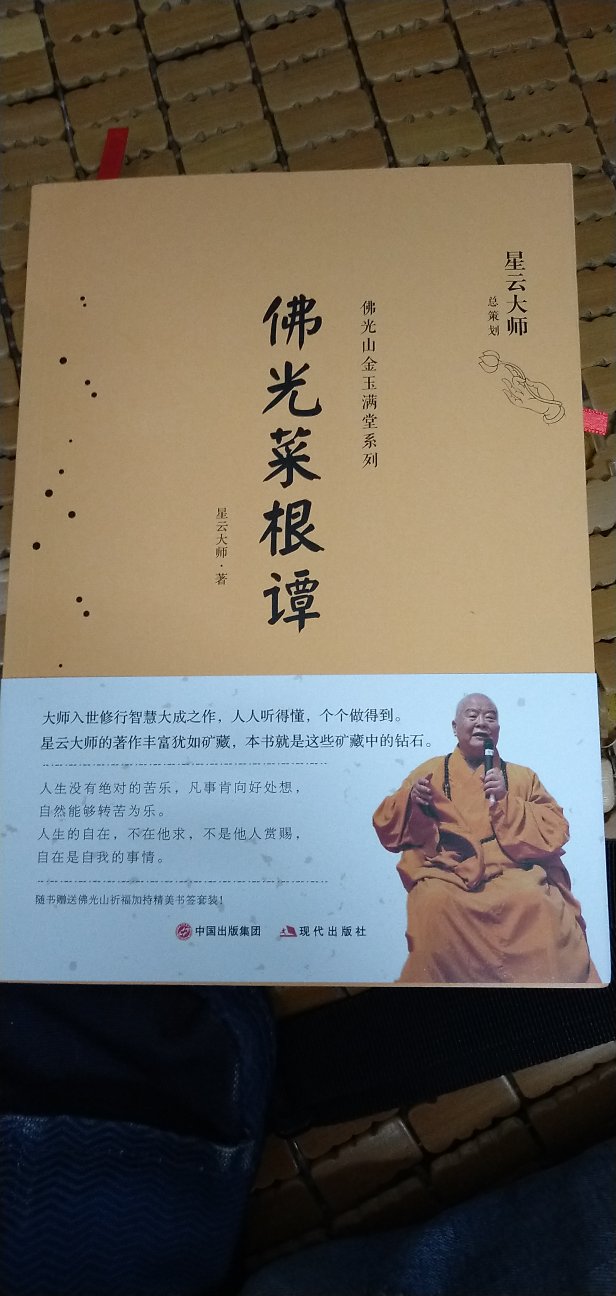 星云大师
总策划
佛光山金玉满堂系列
佛光菜根谭
星云大师·著
大师入世修行智慧大成之作，人人听得懂，个个做得到。
星云大师的著作丰富犹如矿藏，本书就是这些矿藏中的钻石。
人生没有绝对的苦乐，凡事肯向好处想，
自然能够转苦为乐。
人生的自在，不在他求，不是他人赏赐，
自在是自我的事情。
随书赠送佛光山祈福加持精美书签套装！
中国出版集团 现代出版社